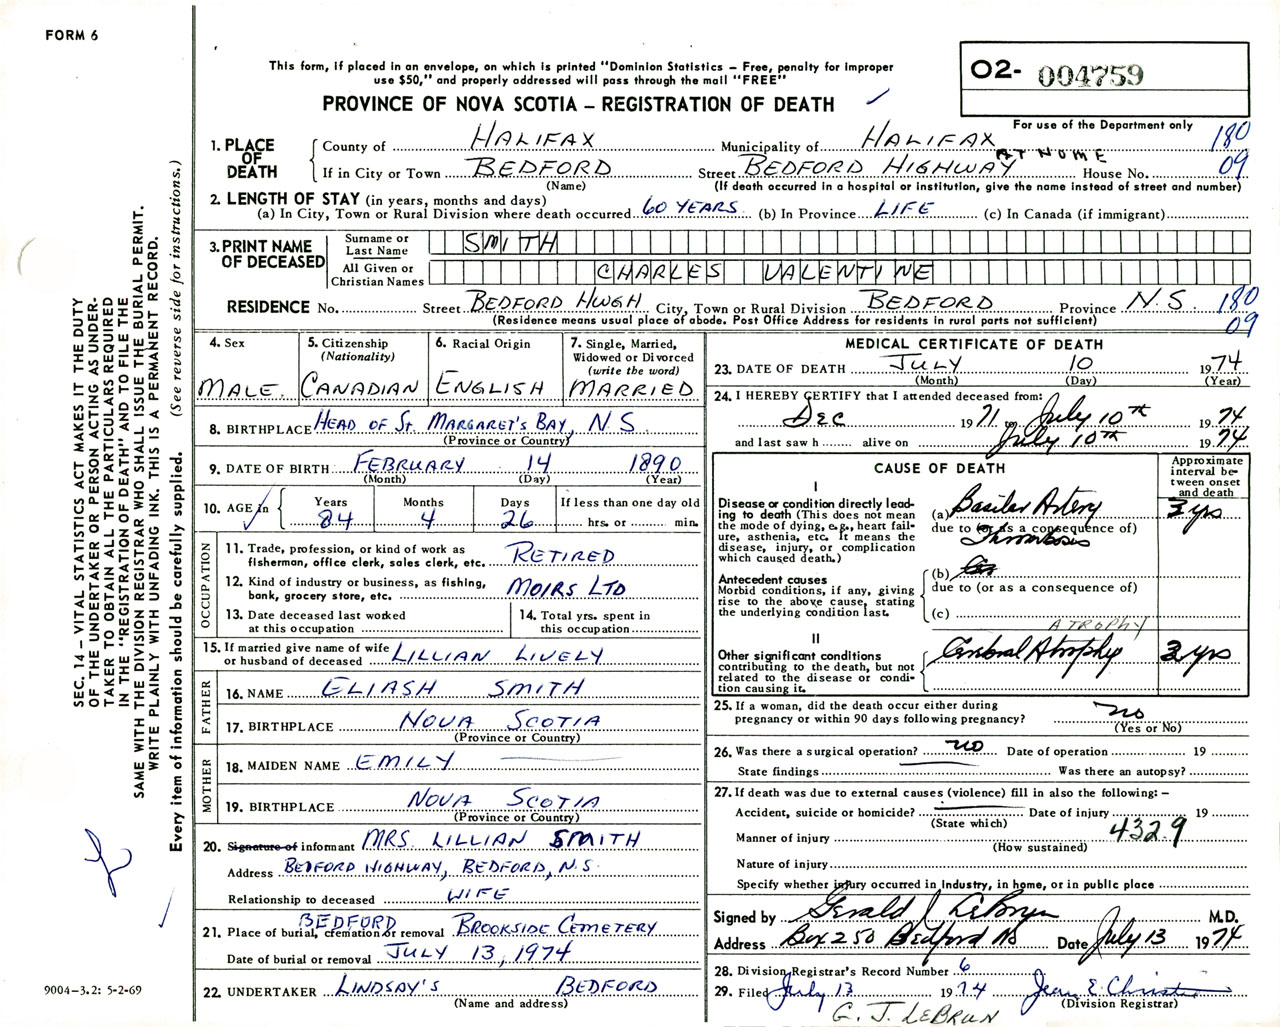 FORM 6
This form, if placed in an envelope, on which is printed "Dominion Statistics – Free, penalty for improper
use $50," and properly addressed will pass through the mail "FREE"
O2- 004759
PROVINCE OF NOVA SCOTIA – REGISTRATION OF DEATH
For use of the Department only
1. PLACE OF DEATH
County of HALIFAX Municipality of HALIFAX 180
AT HOME
If in City or Town BEDFORD Street BEDFORD HIGHWAY House No. 09
(Name) (If death occurred in a hospital or institution, give the name instead of street and number)
2. LENGTH OF STAY (in years, months and days)
(a) In City, Town or Rural Division where death occurred 60 YEARS (b) In Province LIFE (c) In Canada (if immigrant)
3. PRINT NAME OF DECEASED
Surname or Last Name SMITH
All Given or Christian Names CHARLES VALENTINE
RESIDENCE No. Street BEDFORD HWGH City, Town or Rural Division BEDFORD Province N.S 180
(Residence means usual place of abode. Post Office Address for residents in rural parts not sufficient) 09
4. Sex
MALE
5. Citizenship (Nationality)
CANADIAN
6. Racial Origin
ENGLISH
7. Single, Married, Widowed or Divorced (write the word)
MARRIED
8. BIRTHPLACE HEAD OF ST. MARGARET'S BAY, N S
(Province or Country)
9. DATE OF BIRTH FEBRUARY 14 1890
(Month) (Day) (Year)
10. AGE in
Years Months Days If less than one day old
84 4 26 hrs. or min.
OCCUPATION
11. Trade, profession, or kind of work as
fisherman, office clerk, sales clerk, etc. RETIRED
12. Kind of industry or business, as fishing,
bank, grocery store, etc. MOIRS LTD
13. Date deceased last worked
at this occupation
14. Total yrs. spent in
this occupation
15. If married give name of wife
or husband of deceased LILLIAN LIVELY
FATHER
16. NAME ELIASH SMITH
17. BIRTHPLACE NOVA SCOTIA
(Province or Country)
MOTHER
18. MAIDEN NAME EMILY
19. BIRTHPLACE NOVA SCOTIA
(Province or Country)
20. Signature of informant MRS. LILLIAN SMITH
Address BEDFORD HIGHWAY, BEDFORD, N.S.
Relationship to deceased WIFE
BEDFORD
21. Place of burial, cremation or removal BROOKSIDE CEMETERY
Date of burial or removal JULY 13, 1974
22. UNDERTAKER LINDSAY'S BEDFORD
(Name and address)
MEDICAL CERTIFICATE OF DEATH
23. DATE OF DEATH JULY 10 1974
(Month) (Day) (Year)
24. I HEREBY CERTIFY that I attended deceased from:
Dec 1971 to July 10th 1974
and last saw h alive on July 10th 1974
CAUSE OF DEATH
Approximate interval between onset and death
I
Disease or condition directly leading to death (This does not
the mode of dying, e.g., heart failure, asthenia, etc. It means the
disease, injury, or complication
which caused death.)
(a) Basilar Artery 3 yrs
due to (or as a consequence of)
Thrombosis
Antecedent causes
Morbid conditions, if any, giving
rise to the above cause, stating
the underlying condition last.
(b)
due to (or as a consequence of)
(c)
ATROPHY
II
Other significant conditions
contributing to the death, but not
related to the disease or condition causing it.
Cerebral Atrophy 3 yrs
25. If a woman, did the death occur either during
pregnancy or within 90 days following pregnancy? no
(Yes or No)
26. Was there a surgical operation? no Date of operation 19
State findings Was there an autopsy?
27. If death was due to external causes (violence) fill in also the following: –
Accident, suicide or homicide? Date of injury 19
(State which)
Manner of injury 4329
(How sustained)
Nature of injury
Specify whether injury occurred in Industry, in home, or in public place
Signed by Gerald J LeBrun M.D.
Address Box 250 Bedford NS Date July 13 1974
28. Division Registrar's Record Number 6
29. Filed July 13 1974 Jean E. Christie
(Division Registrar)
G. J. LEBRUN
SEC. 14 – VITAL STATISTICS ACT MAKES IT THE DUTY
OF THE UNDERTAKER OR PERSON ACTING AS UNDERTAKER TO OBTAIN ALL THE PARTICULARS REQUIRED
IN THE "REGISTRATION OF DEATH" AND TO FILE THE
SAME WITH THE DIVISION REGISTRAR WHO SHALL ISSUE THE BURIAL PERMIT.
WRITE PLAINLY WITH UNFADING INK. THIS IS A PERMANENT RECORD.
Every item of information should be carefully supplied. (See reverse side for instructions.)
9004–3.2: 5-2-69